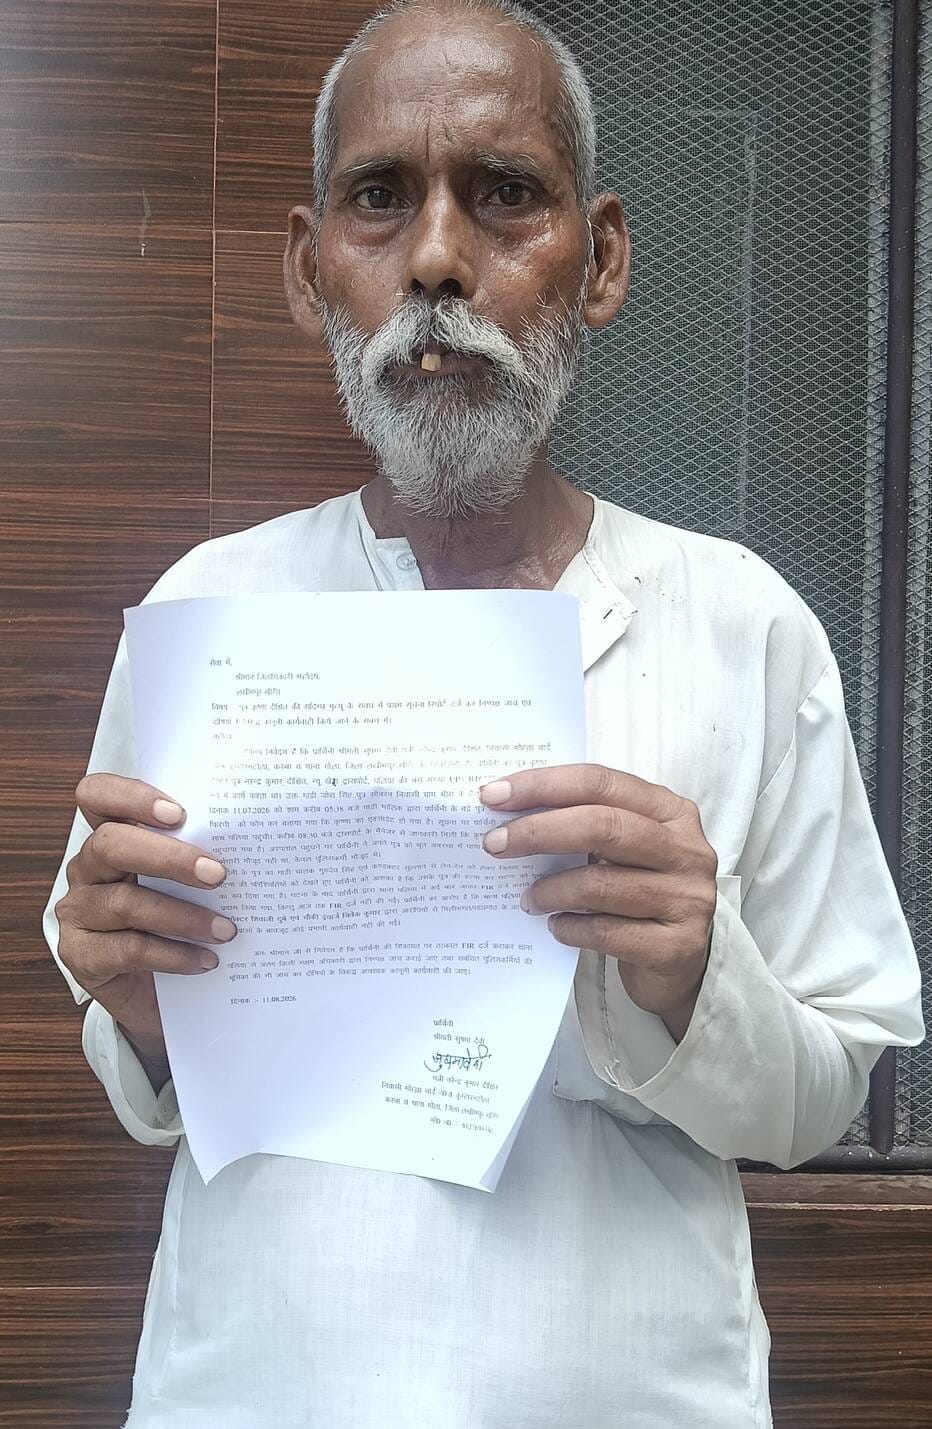 सेवा में,
श्रीमान जिलाधिकारी महोदय,
लखीमपुर खीरी।
विषय पुत्र कृष्णा दीक्षित की संदिग्ध मृत्यु के संबंध में प्रथम सूचना रिपोर्ट दर्ज कर निष्पक्ष जांच एवं
दोषियों के विरुद्ध कानूनी कार्यवाही किये जाने के संबंध में।
महोदय
निवेदन है कि प्रार्थिनी श्रीमती सुषमा देवी पत्नी नरेन्द्र कुमार दीक्षित, निवासी मोहल्ला वार्ड
कस्बा व थाना मोला, जिला लखीमपुर खीरी की प्रार्थिनी का पुत्र कृष्णा
पुत्र नरेन्द्र कुमार दीक्षित, न्यू ट्रांसपोर्ट, पलिया की बस संख्या
में कार्य करता था। उक्त गाड़ी जोरा सिंह पुत्र सोबरन निवासी ग्राम भीरा के
दिनांक 11.07.2026 को शाम करीब 05:38 बजे गाड़ी मालिक द्वारा प्रार्थिनी के बड़े पुत्र
को फोन कर बताया गया कि कृष्णा का एक्सीडेंट हो गया है। सूचना पर प्रार्थिनी
साथ पलिया पहुंची। करीब 08:30 बजे ट्रांसपोर्ट के मैनेजर से जानकारी मिली कि
पहुंचाया गया है। अस्पताल पहुंचने पर प्रार्थिनी ने अपने पुत्र को मृत अवस्था में
मौजूद नहीं था, केवल पुलिसकर्मी मौजूद थे।
के पुत्र का गाड़ी चालक गुरुदेव सिंह एवं कण्डक्टर सुल्तान से लेन-देन को लेकर विवाद था।
की परिस्थितियों को देखते हुए प्रार्थिनी को आशंका है कि उसके पुत्र की हत्या कर घटना को
का रूप दिया गया है। घटना के बाद प्रार्थिनी द्वारा थाना पलिया में कई बार जाकर FIR दर्ज कराने
प्रयास किया गया, किन्तु आज तक FIR दर्ज नहीं की गई। प्रार्थिनी का आरोप है कि थाना पलिया
शिवाजी दुबे एवं चौकी इंचार्ज विवेक कुमार द्वारा आरोपियों से मिलीभगत/सांठगांठ के
के बावजूद कोई प्रभावी कार्यवाही नहीं की गई।
अतः श्रीमान जी से निवेदन है कि प्रार्थिनी की शिकायत पर तत्काल FIR दर्ज कराकर थाना
पलिया से अलग किसी सक्षम अधिकारी द्वारा निष्पक्ष जांच कराई जाए तथा संबंधित पुलिसकर्मियों की
भूमिका की भी जांच कर दोषियों के विरुद्ध आवश्यक कानूनी कार्यवाही की जाए।
दिनांक :- 11.08.2026
प्रार्थिनी
श्रीमती सुषमा देवी
सुषमा देवी
पत्नी नरेन्द्र कुमार दीक्षित
निवासी मोहल्ला वार्ड कुम्हारनटोला,
कस्बा व थाना मोला, जिला-लखीमपुर खीरी
मो0 न0 :-